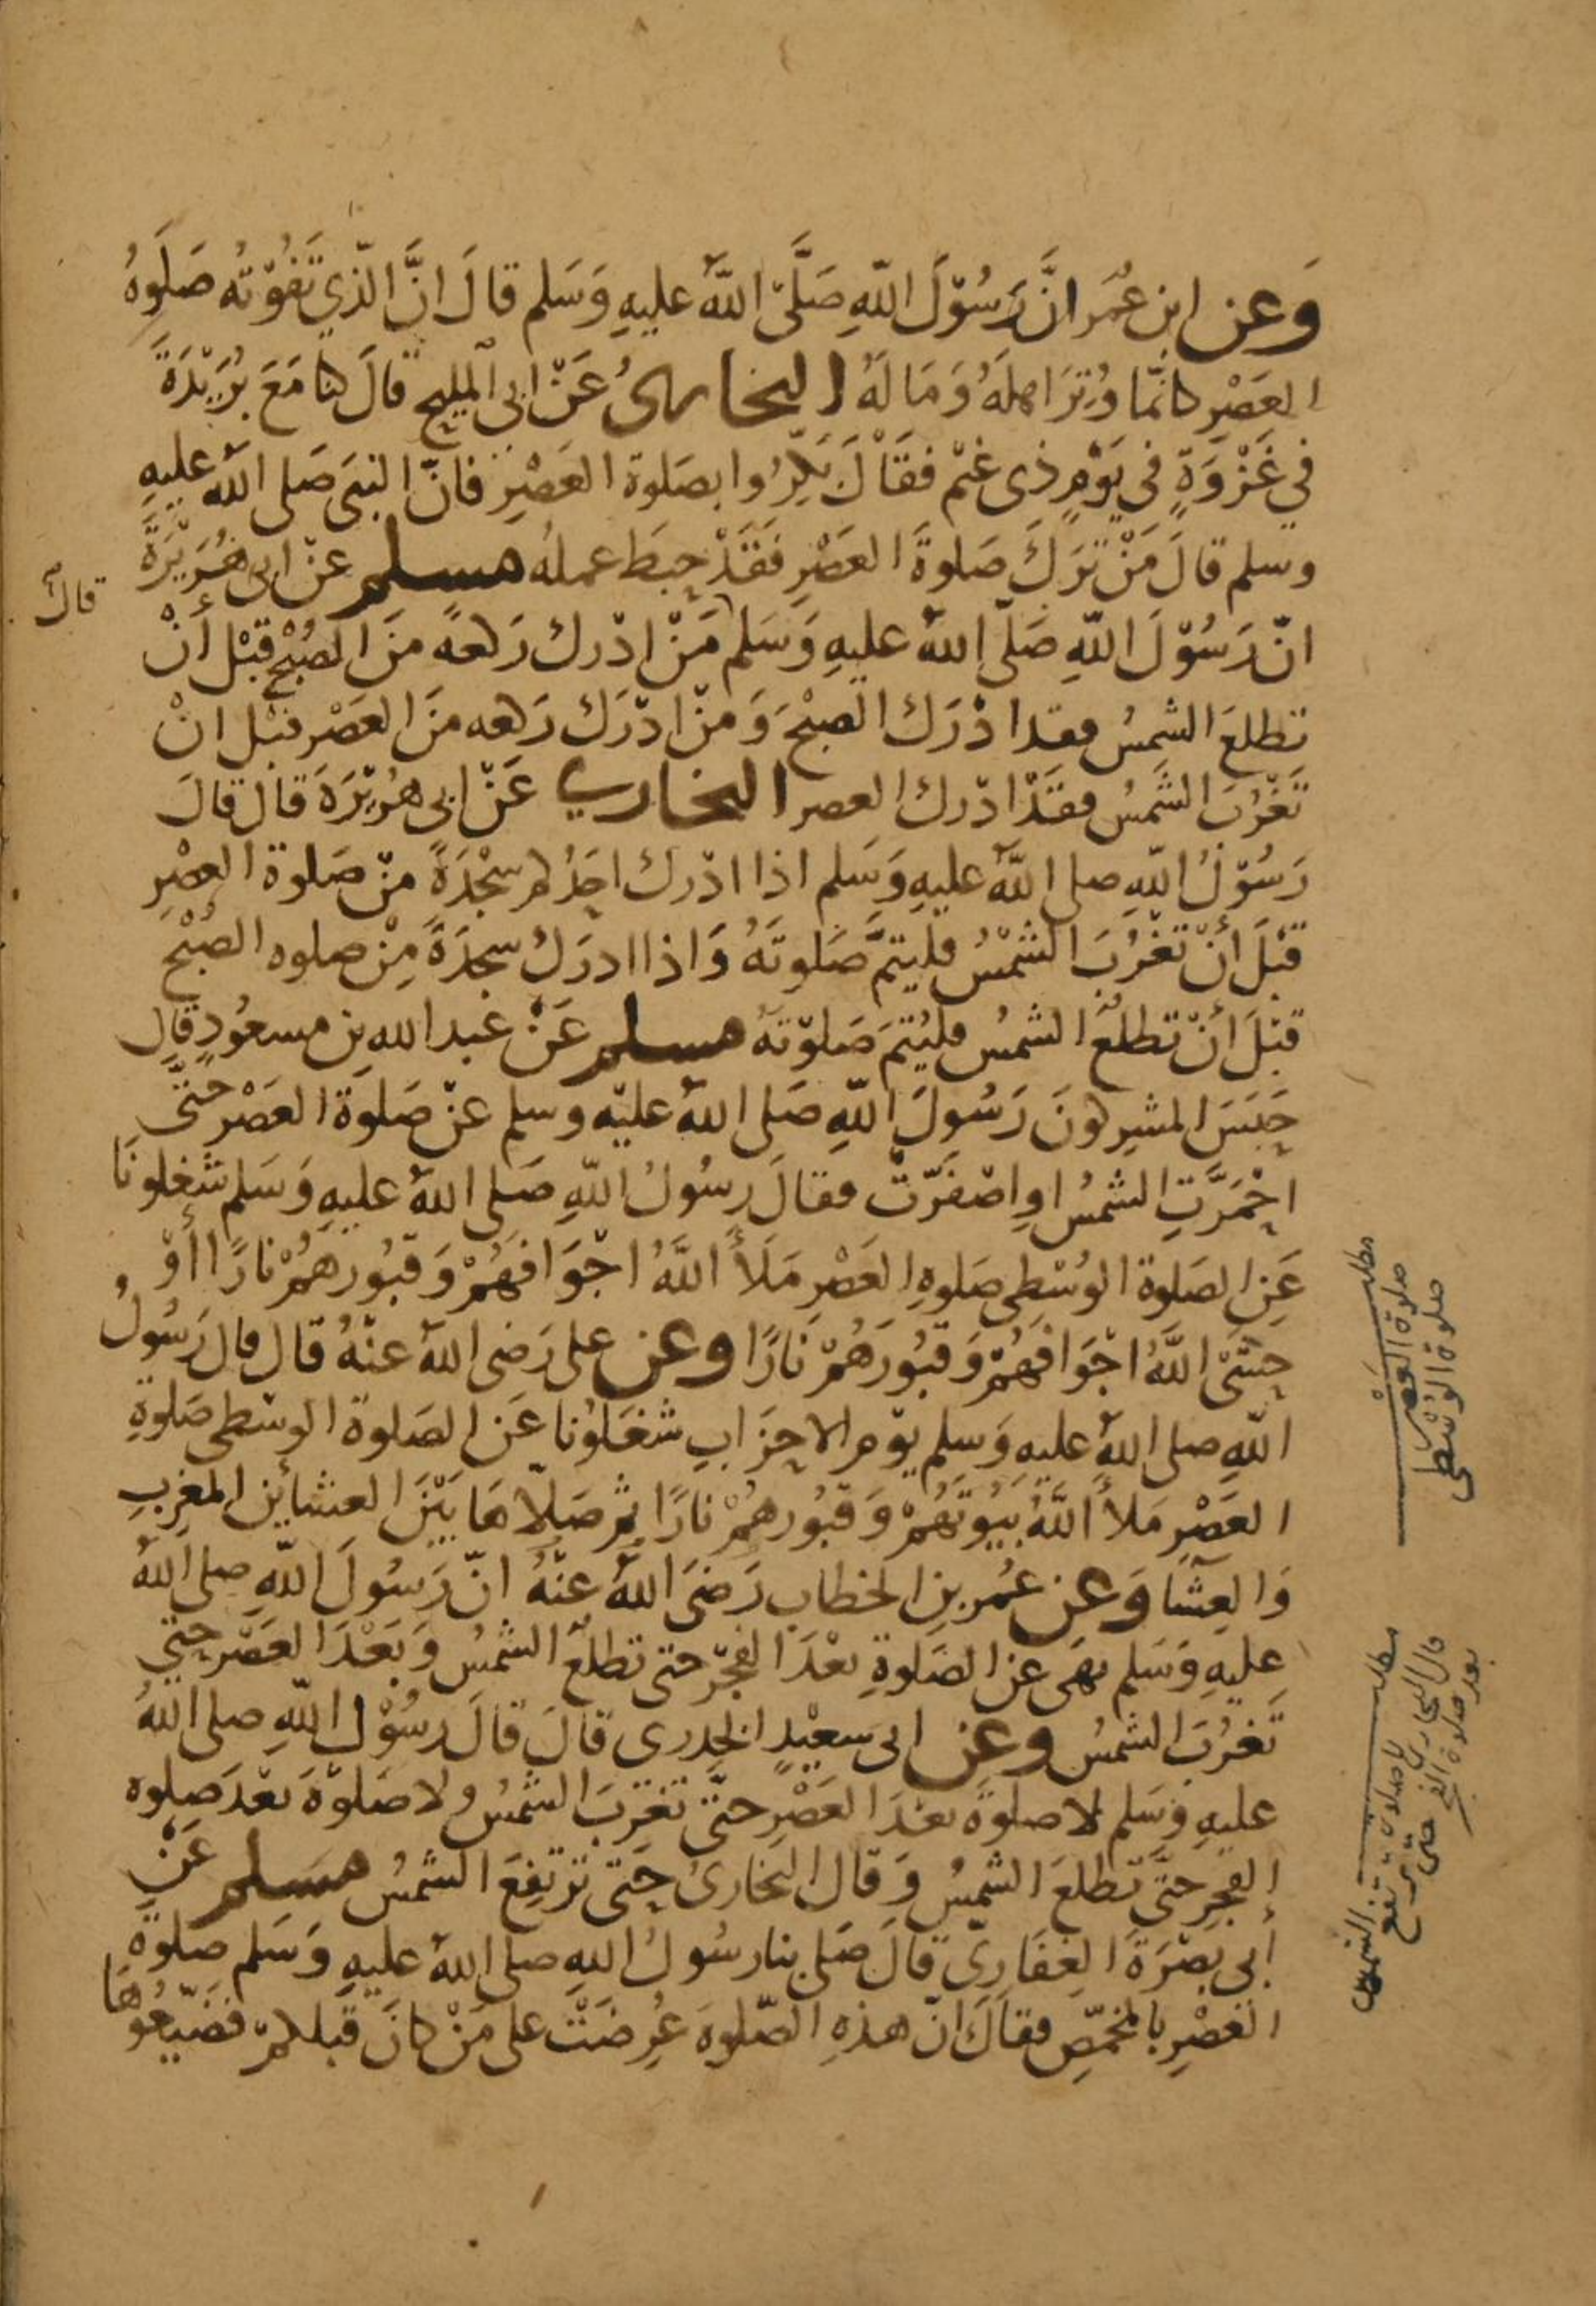 وَعن ابن عُمَر انَّ رَسُوْلَ اللّهِ صَلَّىَ اللّهُ عليهِ وَسَلم قالَ انَّ الّذي تَفُوْتُه صَلَوةُ
العَصْرِ كانّمَا وُتِرَ اهلَهُ وَمَا لَهُ البخارىُ عَنْ ابى المليح قالَ كنا مَعَ بُرَيْدَةَ
في غَزْوَةٍ في يَوْمٍ ذى غيْم فقَالَ بَكِّرُوا بصَلوة العَصْرِ فانّ النبىَ صَلى اللّه عليهِ
وسلم قالَ مَنْ تَرَكَ صَلوةَ العَصْرِ فَقَدْ حبَط عمله مسلم عنْ ابى هُرَيْرَةَ
انّ رَسُوْلَ اللّهِ صَلّى اللّهُ عليهِ وَسَلم مَنْ ادْرك رَكعةً منَ الصُبْح قبْل أنْ
قالَ
تطلعَ الشمسُ فقد ادْرَك الصبْحَ وَمنْ ادْرَك رَكعه منَ العَصْر قبْل انْ
تَغْرُبَ الشَمسُ فقَدْ ادْرك العصر البخارى عَنْ ابى هُرَيْرَةَ قالَ قالَ
رَسُوْلُ اللّهِ صلى اللّهُ عليهِ وَسَلم اذا ادْرك احَدُكم سجْدَةً منْ صَلوة العصْرِ
قبْلَ أنْ تغْرُبَ الشمْسُ فليُتمَّ صَلوتَهُ وَاذا ادرَكَ سجدَةً مِنْ صلوه الصُبْح
قبْلَ أنْ تطلعَ الشمسُ فليُتمَ صَلوْتهُ مسلم عَنْ عَبد الله بن مسعُودٍ قال
حبَسَ المشركونَ رَسُولَ اللّهِ صَلى اللّهُ عليْه وسلم عنْ صَلوة العَصْر حتَّى
احْمَرَّتِ الشمْسُ اوِ اصْفَرّتْ فقالَ رسُولُ اللّهِ صَلى اللّهُ عليهِ وَسَلم شغلونَا
عَنِ الصَلوة الوُسْطى صَلوةِ العَصْرِ مَلَأَ اللَّهُ اجْوَافهُمْ وَقبُورهُمْ نارًا أوْ
حشَىَ اللَّهُ اجْوَافهُمْ وَقبُورَهُمْ نَارًا وعن على رَضى اللّهُ عنْهُ قال قال رَسُولُ
اللّهِ صلى اللّهُ عليه وَسلم يوْم الاحزَابِ شغَلُونا عَن الصَلوة الوسْطى صَلوةِ
العَصْرِ مَلأ اللَّهُ بيُوتَهُمْ وَقبُورهُمْ نارًا ثم صَلّاهَا بَيْنَ العشائين المغربِ
وَالعِشَا وَعن عُمر بن الخطاب رَضىَ اللّهُ عنْهُ انّ رَسُولَ اللّهِ صلى اللّهُ
عليهِ وَسَلم نهَى عن الصَلوةِ بعْدَ الفجْر حتى تطلعَ الشمسُ وَبَعْدَ العَصْر حتى
تَغرُبَ الشمسُ وعن ابى سعيْدٍ الخدرى قالَ قالَ رسُوْل اللّهِ صلى اللّهُ
عليهِ وَسَلم لا صلوةَ بعْدَ العَصْرِ حتّى تغرُبَ الشمْسُ ولا صَلوْةَ بعْدَ صَلوه
الفجرِ حتَّى تطلعَ الشمْسُ وَقال البخارىُ حَتى ترْتفِعَ الشمسُ مسلم عَنْ
أبى بَصْرَةَ الغفَارِىّ قالَ صَلى بنا رسُولُ اللهِ صلى اللّهُ عليهِ وَسَلم صلوةَ
العَصْرِ بالمخمّصِ فقالَ انّ هذهِ الصّلوةَ عُرِضَتْ على مَنْ كانَ قبْلكمْ فضَيّعُوهَا
مطلب
صلوة العصر
صلوة الوُسْطى
مطلب
قال البخارى لا صلوة
بعد صلوة الفجر حتى ترتفع
الشمس